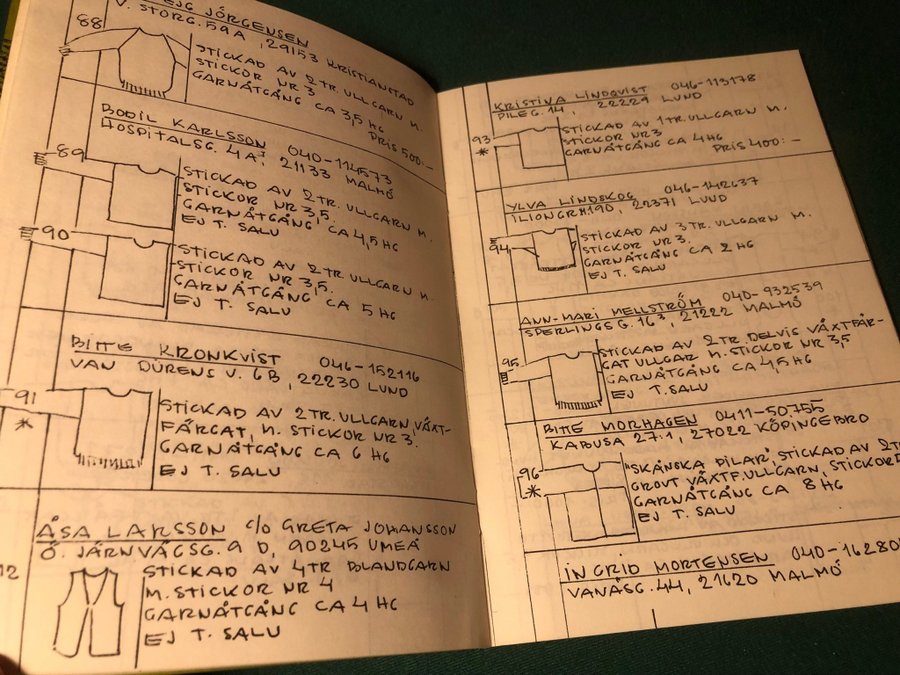 JÖRGENSEN
V. STORG. 59A, 29153 KRISTIANSTAD
88
STICKAD AV 2 TR. ULLGARN M.
STICKOR NR 3
GARNÅTGÅNG CA 3,5 HG
PRIS 500:-
BODIL KARLSSON 040-114573
HOSPITALSG. 4A, 21133 MALMÖ
89
STICKAD AV 2 TR. ULLGARN M.
STICKOR NR 3,5.
GARNÅTGÅNG CA 4,5 HG
EJ T. SALU
90
STICKAD AV 2 TR. ULLGARN M.
STICKOR NR 3,5.
GARNÅTGÅNG CA 5 HG
EJ T. SALU
BITTE KRONKVIST 046-152116
VAN DÜRENS V. 6B, 22230 LUND
91
*
STICKAD AV 2 TR. ULLGARN, VÄXT-
FÄRGAT, M. STICKOR NR 3.
GARNÅTGÅNG CA 6 HG
EJ T. SALU
ÅSA LARSSON C/O GRETA JOHANSSON
Ö. JÄRNVÄGSG. 9 D, 90245 UMEÅ
STICKAD AV 4TR BLANDGARN
M. STICKOR NR 4
GARNÅTGÅNG CA 4 HG
EJ T. SALU
KRISTINA LINDQVIST 046-113178
PILEG. 14, 22229 LUND
93
*
STICKAD AV 1 TR. ULLGARN M.
STICKOR NR 3
GARNÅTGÅNG CA 4 HG
PRIS 400:-
YLVA LINDSKOG 046-142637
22371 LUND
94
STICKAD AV 3 TR. ULLGARN M.
STICKOR NR 3.
GARNÅTGÅNG CA 2 HG
EJ T. SALU
ANN-MARI MELLSTRÖM 040-932539
SPERLINGSG. 16³, 21222 MALMÖ
95
STICKAD AV 2 TR. DELVIS VÄXTFÄR-
GAT ULLGAR M. STICKOR NR 3,5
GARNÅTGÅNG CA 4,5 HG
EJ T. SALU
BITTE MORHAGEN 0411-50.755
KABUSA 27:1, 27022 KÖPINGEBRO
96
*
"SKÅNSKA PILAR", STICKAD AV 2
GROVT VÄXTF. ULLGARN, STICKOR
GARNÅTGÅNG CA 8 HG
EJ T. SALU
INGRID MORTENSEN 040-16280
VANÅSG. 44, 21620 MALMÖ